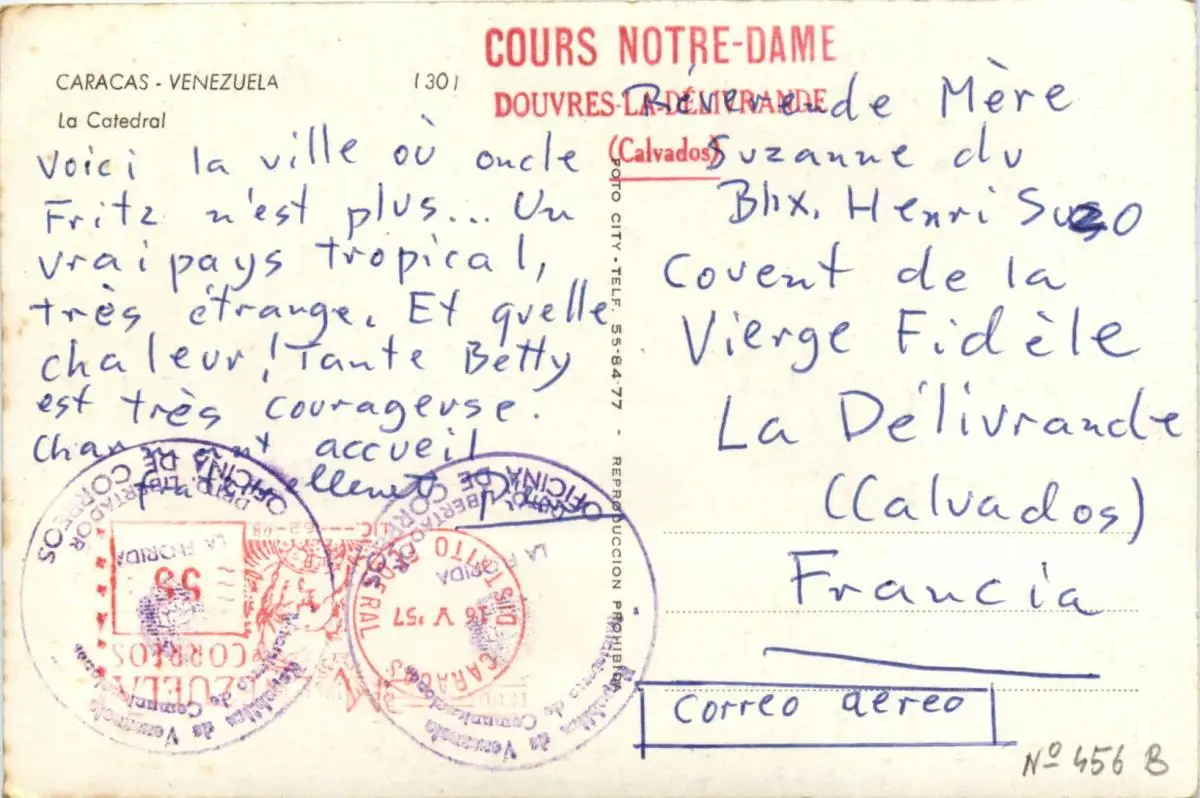 CARACAS - VENEZUELA (30)
La Catedral
Voici la ville où oncle
Fritz n'est plus... Un
vrai pays tropical,
très étrange. Et quelle
chaleur! Tante Betty
est très courageuse.
accueil
COURS NOTRE-DAME
DOUVRES-LA-DÉLIVRANDE
(Calvados)
Révérende Mère
Suzanne du
Bhx. Henri Suzo
Covent de la
Vierge Fidèle
La Délivrande
(Calvados)
Francia
correo aereo
Nº 456 B
FOTO CITY - TELF. 55-84-77 - REPRODUCCION PROHIBIDA
OFICINA DE CORREOS
DPTO. LIBERTADOR
LA FLORIDA
Republica de Venezuela
Ministerio de Comunicaciones
55
CORREOS
OFICINA DE CORREOS
DPTO. LIBERTADOR
LA FLORIDA
Republica de Venezuela
Ministerio de Comunicaciones
CARACAS
16 V '57
DISTRITO FEDERAL